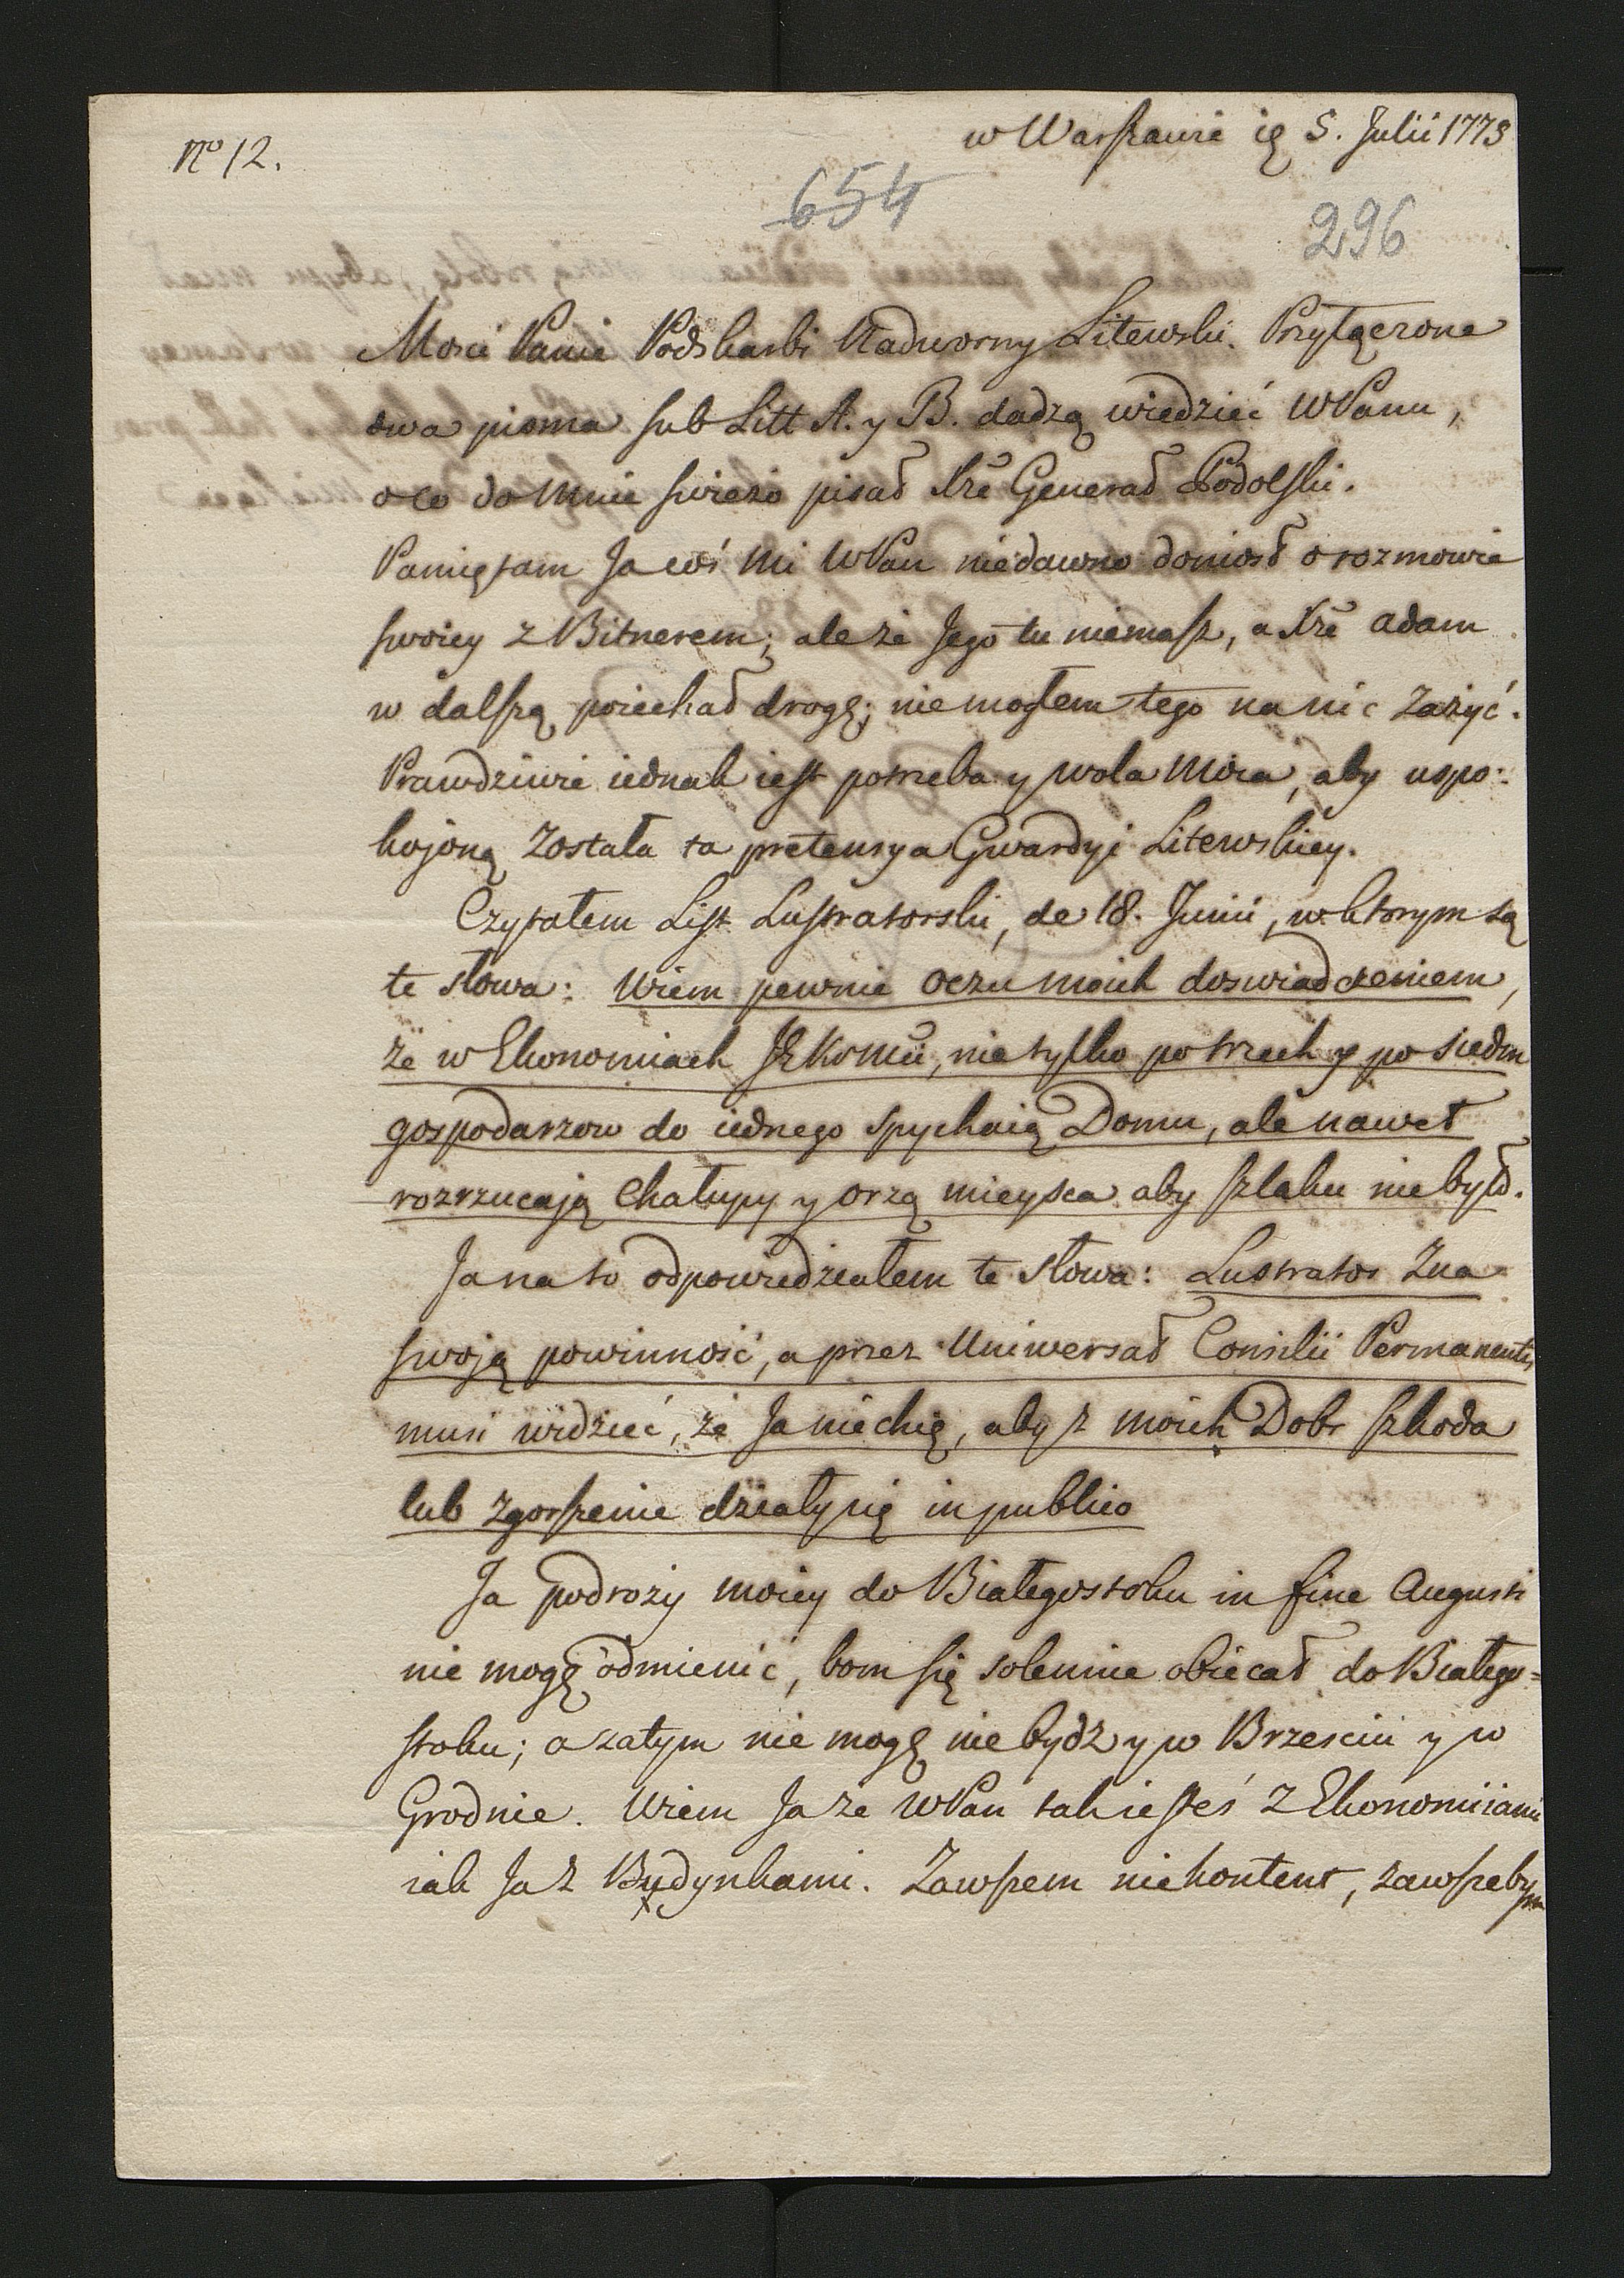 w Warszawie ię 5. Julii 1775
No 12.
654
296
Mosci Panie Podskarbi Nadworny Litewski. Przyłączone
dwa pisma sub Litt A. y B. dadzą wiedzieć WPanu,
o co do mnie swiezo pisał Xże Generał Podolski.
Pamiętam Ja coś mi WPan niedawno doniosł o rozmowie
swoiey z Bitnerem; ale że Jego tu niemasz, a Xże Adam
w dalszą poiechał drogę; niemogłem tego na nic zażyć.
Prawdziwie iednak iest potrzeba y wola Moia, aby uspo:
kojoną została ta pretensya Gwardyi Litewskiey.
Czytałem List Lustratorski, de 18. Junii, w ktorym są
te słowa: Wiem pewnie oczu moich doswiadczeniem,
że w Ekonomiach JKrMci, nie tylko po trzech y po siedm
gospodarzow do iednego spychaią Domu, ale nawet
rozrzucają chałupy y orzą mieysca aby szlaku niebył.
Ja na to odpowiedziałem te słowa: Lustrator zna
swoją powinność, a przez Uniwersał Consilii Permanentis
musi widzieć, że Ja niechcę, aby z moich Dobr szkoda
lub zgorszenie działy się in publico
Ja podroży moiey do Białegostoku in fine Augusti
nie mogę odmienić, bom się solennie obiecał do Białego=
stoku; a zatym nie mogę nie bydz y w Brzesciu y w
Grodnie. Wiem Ja że WPan tak iesteś z Ekonomiiami
iak Ja z Budynkami. Zawszem niekontent, zawszebym